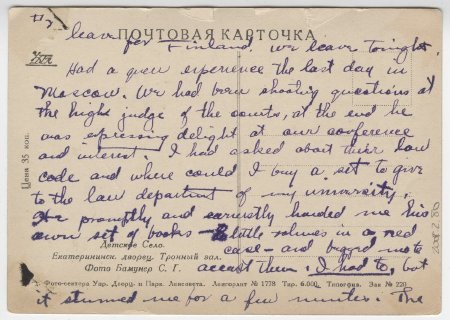 leave for Finland. We leave tonight.
ПОЧТОВАЯ КАРТОЧКА
Had a queer experience the last day in
Moscow. We had been shooting questions at
the high judge of the courts, at the end he
was expressing delight at our conference
and interest. I had asked about their law
code and where could I buy a set to give
to the law department of my university.
He promptly and earnestly handed me his
own set of books - little volumes in a red
case - and begged me to
accept them. I had to, but
it stunned me for a few minutes. The
Цена 35 коп.
Детское Село.
Екатерининск. дворец. Тронный зал.
Фото Бамунер С. Г.
Фото-сектора Упр. Дворц. и Парк. Ленсовета. Ленгорлит № 1778 Тир. 6.000. Типогфия. Зак № 220